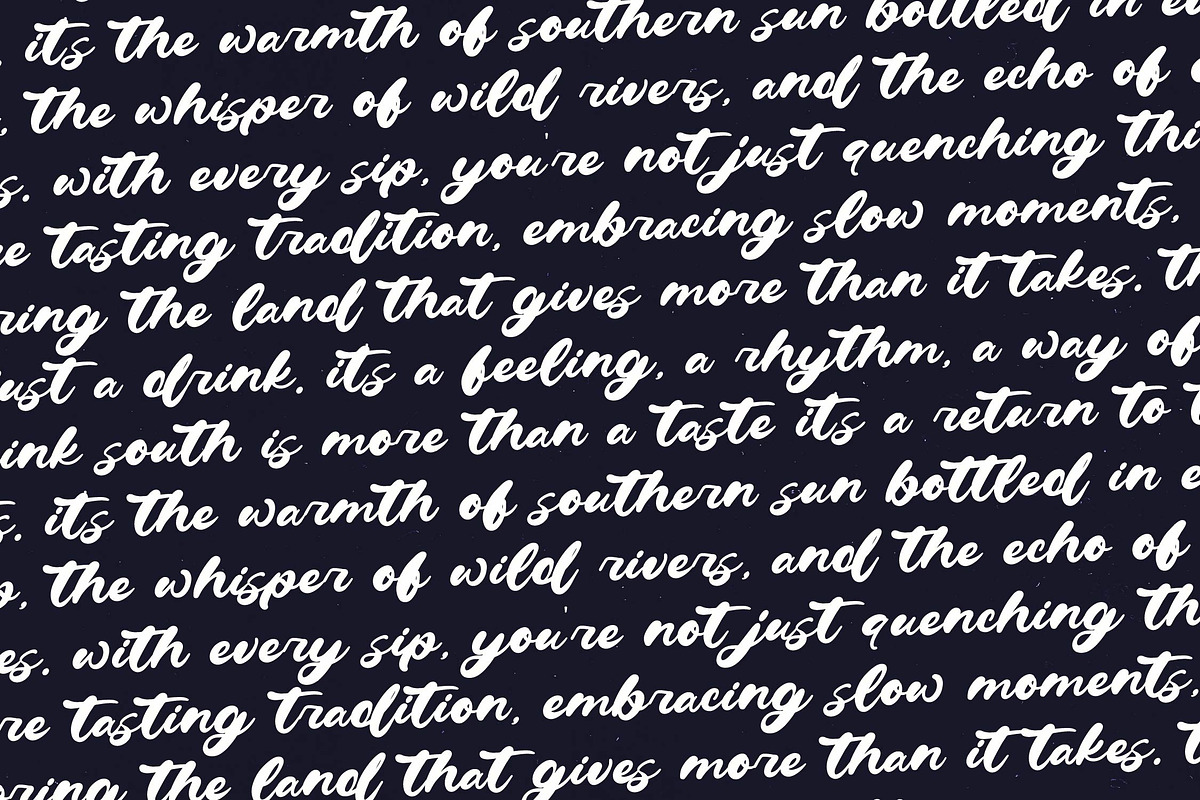 its the warmth of southern sun bottled in
the whisper of wild rivers, and the echo of
s. with every sip, you're not just quenching
tasting tradition, embracing slow moments,
the land that gives more than it takes.
a drink. its a feeling, a rhythm, a way of
south is more than a taste its a return to
s. its the warmth of southern sun bottled in
the whisper of wild rivers, and the echo of
es. with every sip, you're not just quenching
tasting tradition, embracing slow moments,
the land that gives more than it takes.